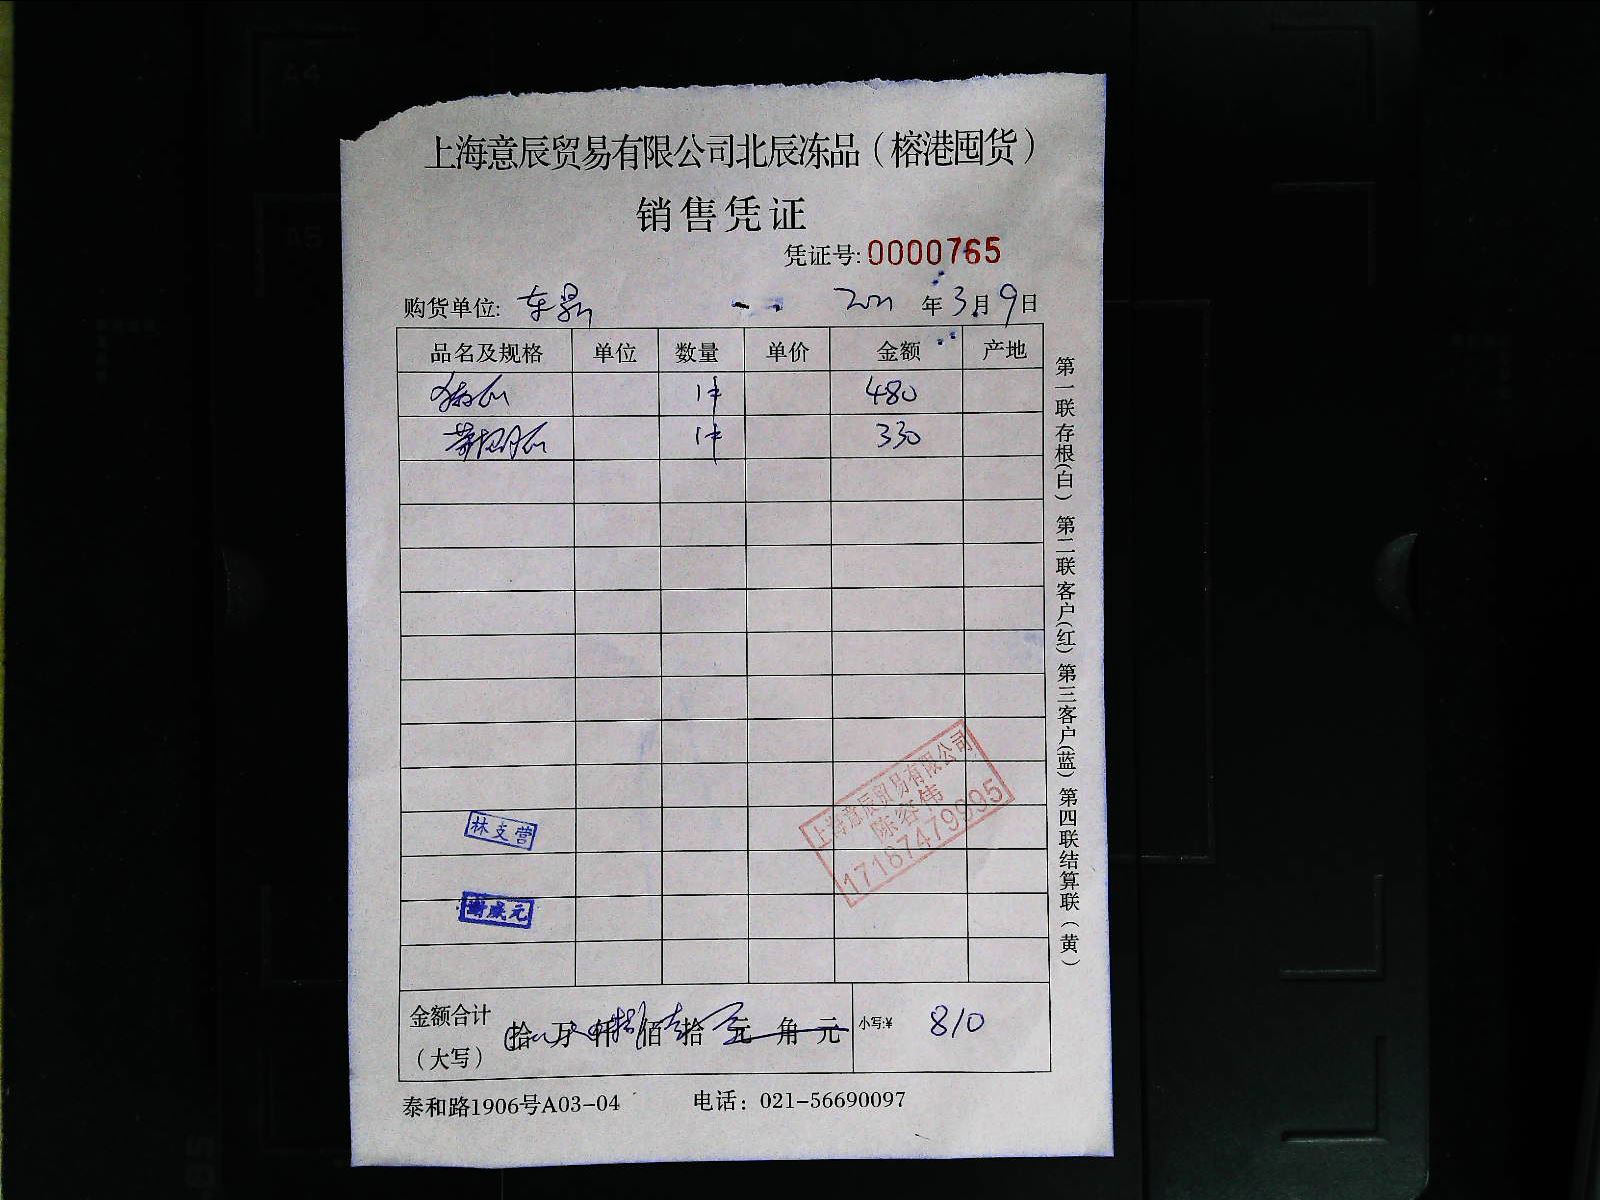 A4
A5
上海意辰贸易有限公司北辰冻品（榕港囤货）
销售凭证
凭证号:0000765
购货单位: 2021年3月9日
品名及规格 单位 数量 单价 金额 产地
1件 480
1件 330
上海意辰贸易有限公司
陈容伟
17187479995
林支营
金额合计（大写） 拾 万 仟 佰 拾 元 角 元 小写:¥ 810
泰和路1906号A03-04 电话：021-56690097
第一联存根(白) 第二联客户(红) 第三客户(蓝) 第四联结算联(黄)